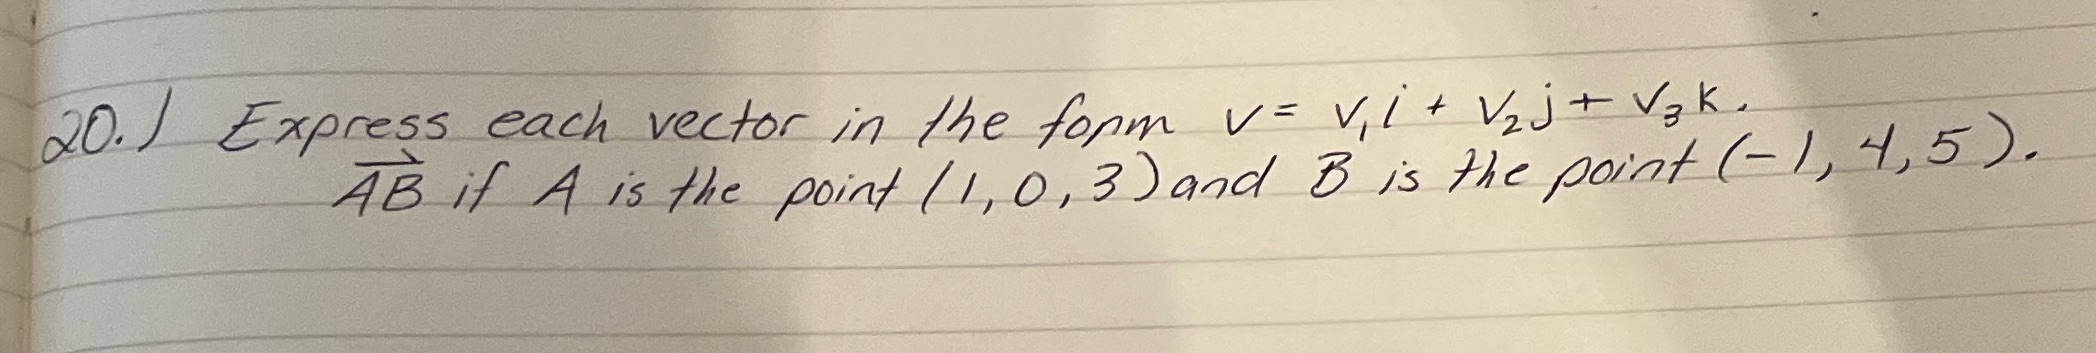 20.) Express each vector in the form v = v₁i + v₂j + v₃k.
AB⃗ if A is the point (1, 0, 3) and B is the point (-1, 4, 5).